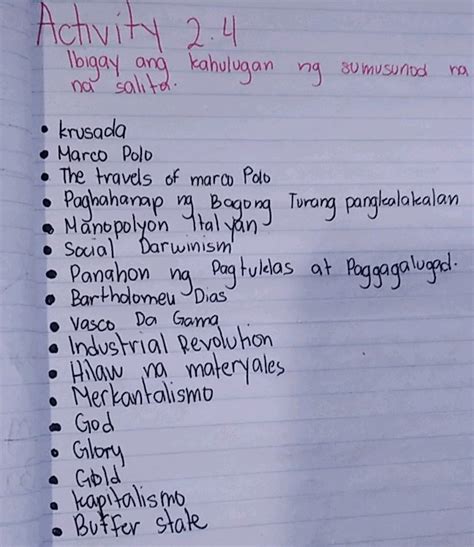 Activity 2.4
Ibigay ang kahulugan ng sumusunod na
na salita.
• krusada
• Marco Polo
• The travels of marco Polo
• Paghahanap ng Bagong Turang pangkalakalan
• Manopolyon Italyan
• Social Darwinism
• Panahon ng Pagtuklas at Paggagalugad.
• Bartholomeu Dias
• Vasco Da Gama
• Industrial Revolution
• Hilaw na materyales
• Merkantalismo
• God
• Glory
• Gold
• kapitalismo
• Buffer state